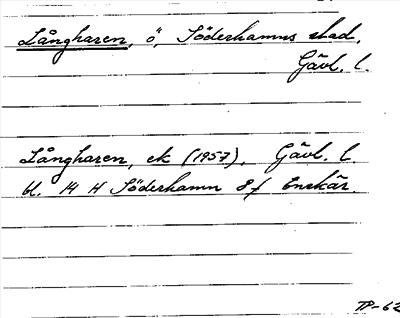 Långharen, ö, Söderhamns stad,
Gävl. l.
Långharen, ek (1957), Gävl. l.
bl. 14 H Söderhamn 8 f Enskär.
TP-62